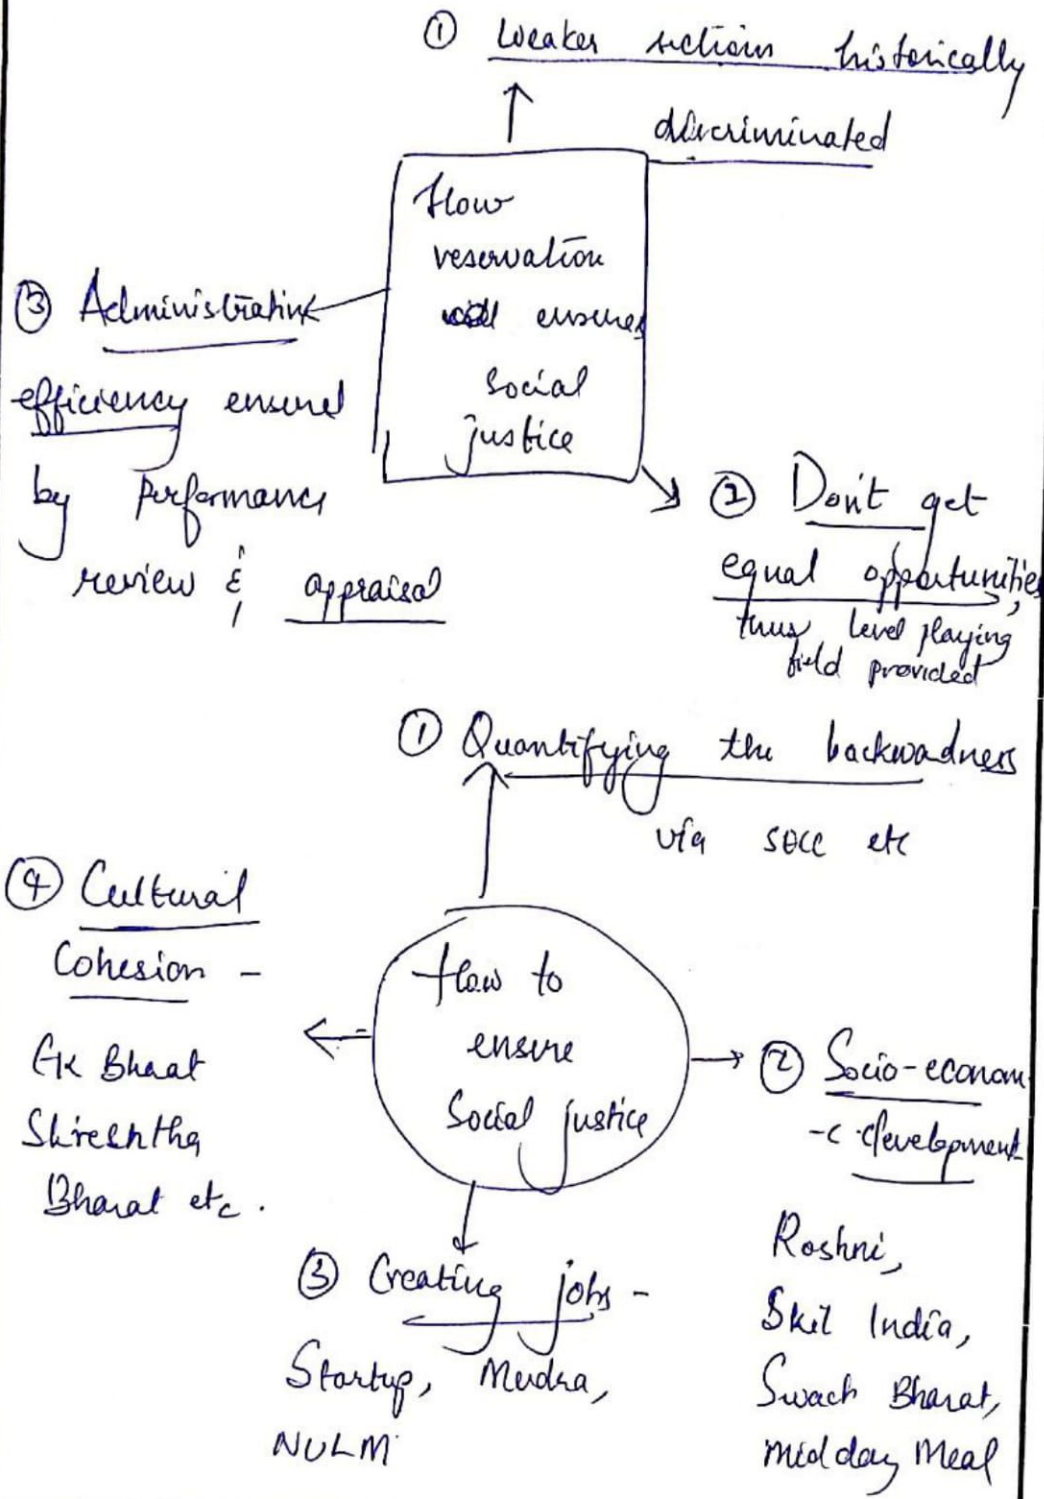 ① Weaker sections historically
discriminated
How
reservation
ensures
social
justice
③ Administrative
efficiency ensured
by Performance
review & appraisal
② Don't get
equal opportunities,
thus level playing
field provided
① Quantifying the backwadness
via SECC etc
④ Cultural
Cohesion -
Ek Bhaat
Shreshtha
Bharat etc.
How to
ensure
Social justice
② Socio-econom
-c development
Roshni,
Skil India,
Swach Bharat,
Midday Meal
③ Creating jobs -
Startup, Mudra,
NULM